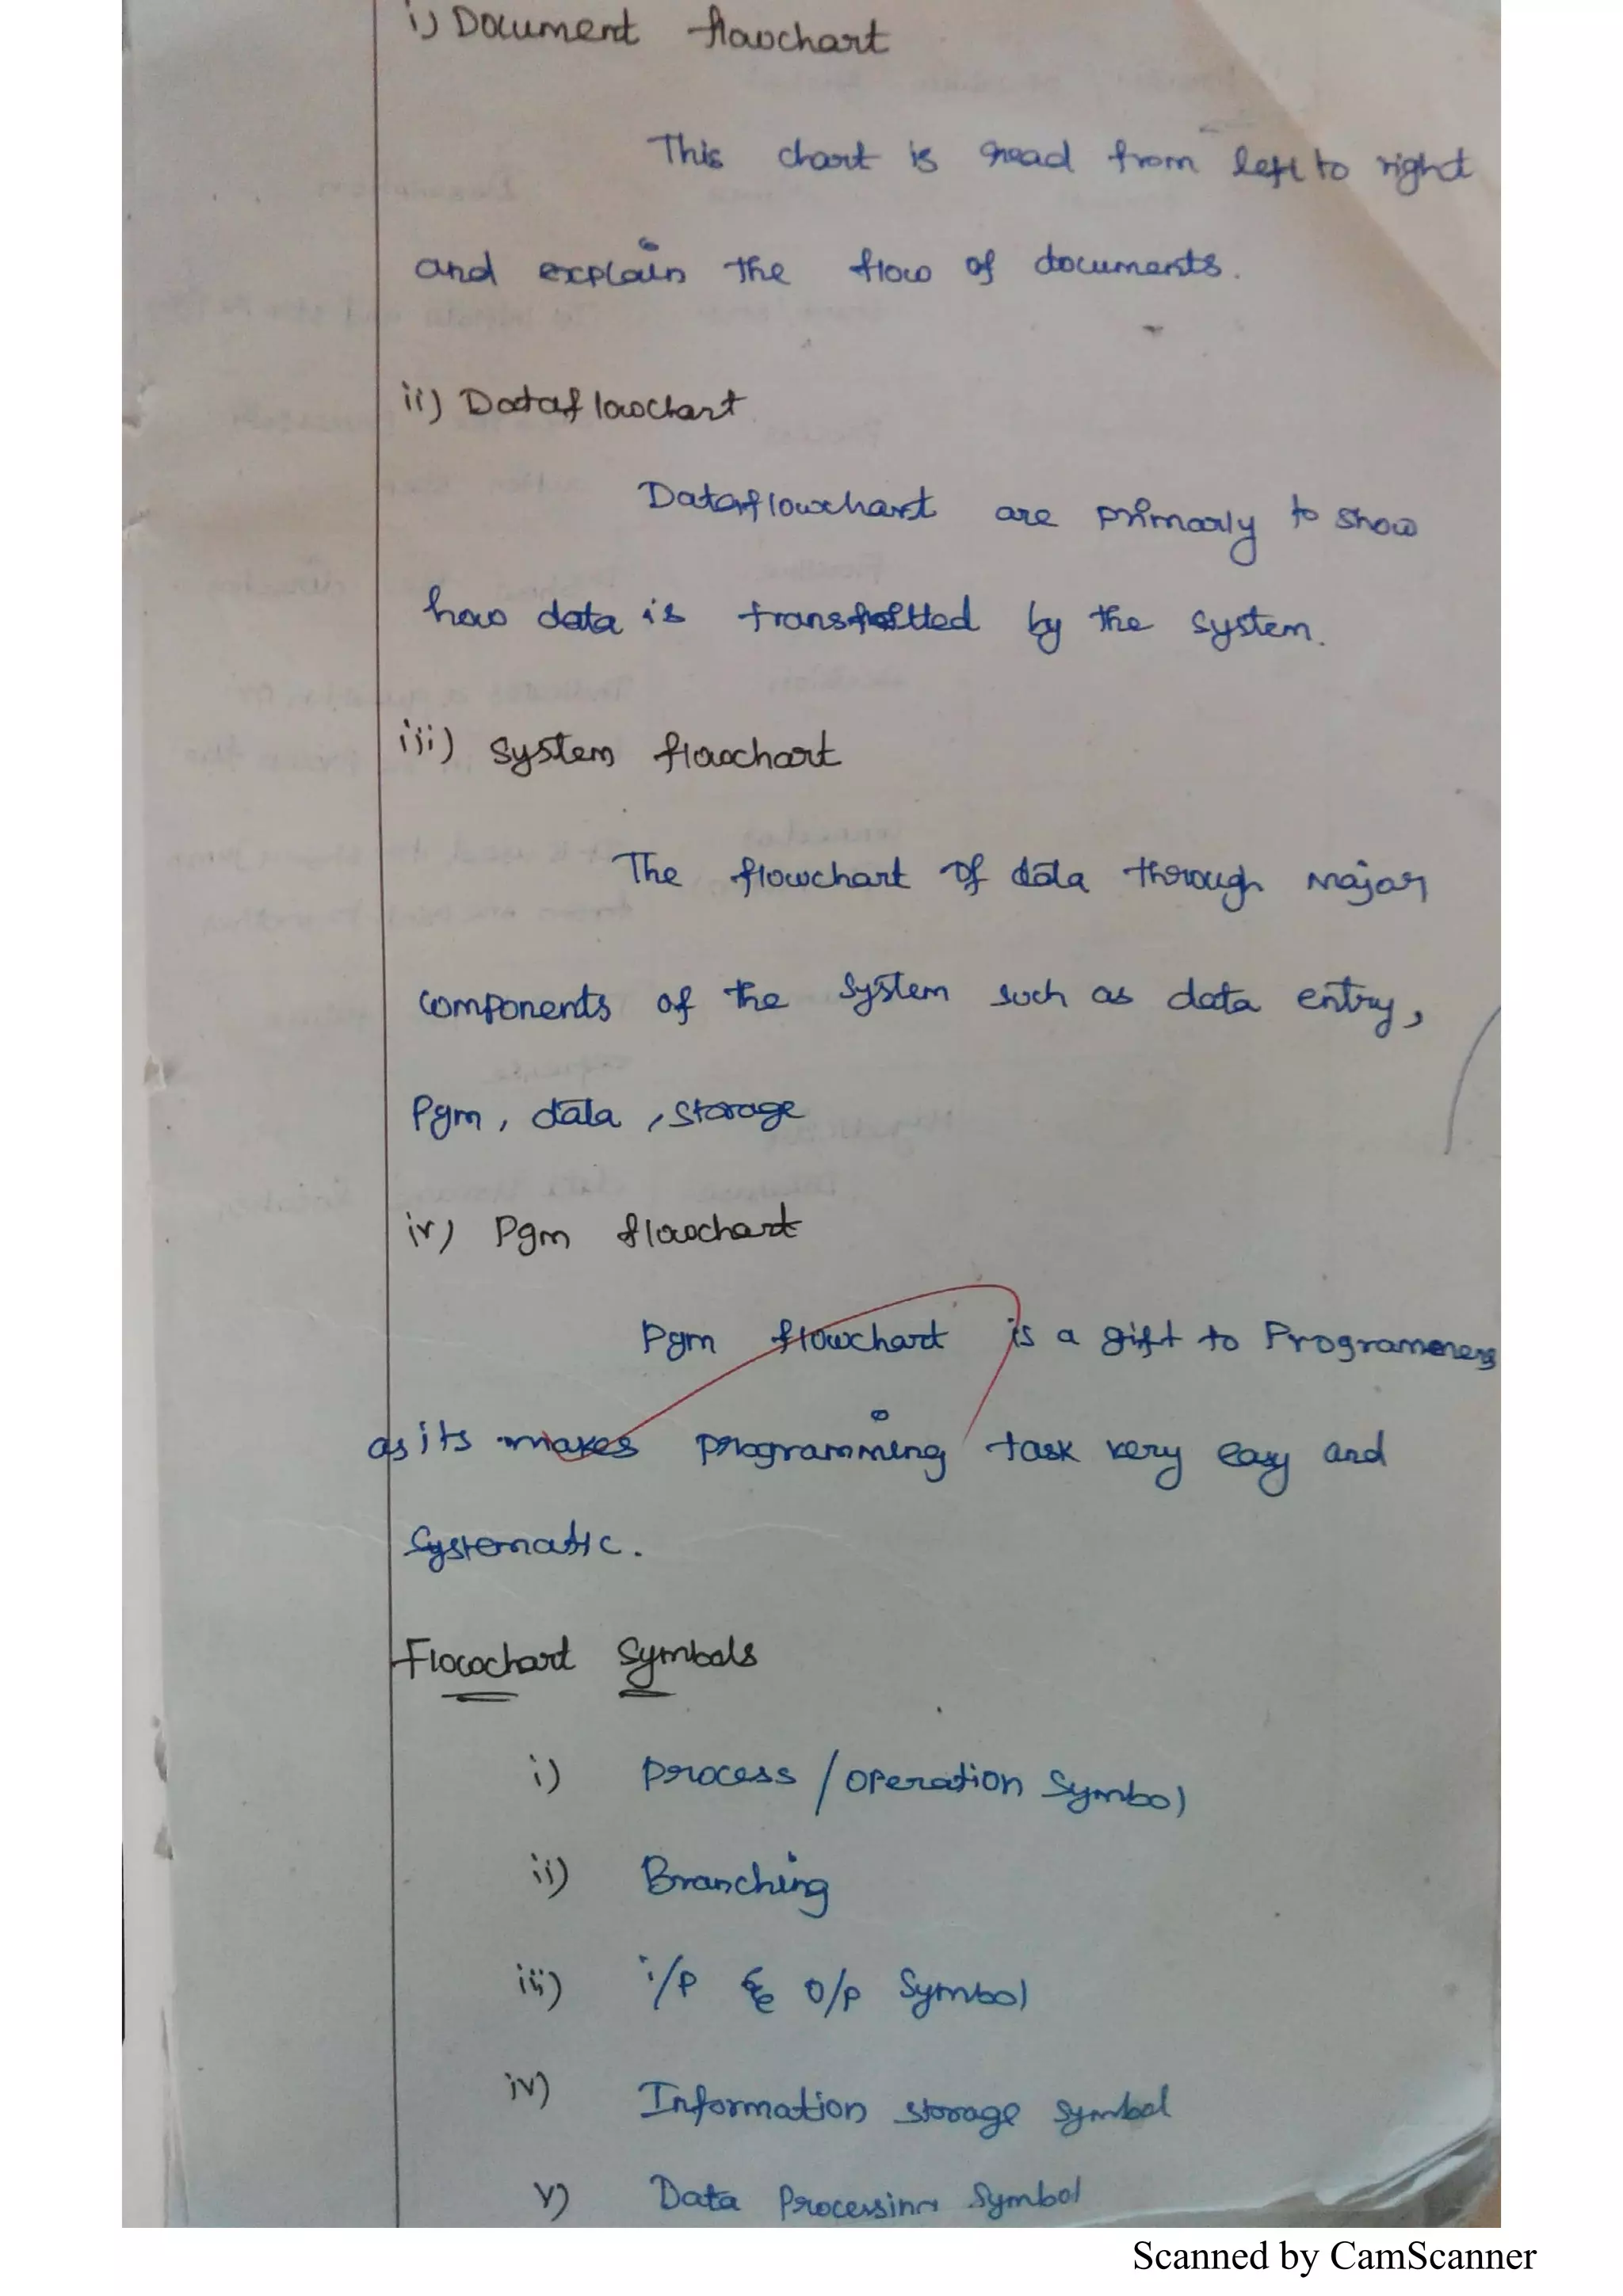 i) Document flowchart
This chart is read from left to right
and explain the flow of documents.
ii) Dataflowchart
Dataflowchart are primarly to show
how data is by the system.
iii) System flowchart
The flowchart of data through major
components of the system such as data entry,
Pgm, data, storage
iv) Pgm flowchart
Pgm flowchart is a gift to Programmers
as its makes programming task very easy and
Systematic.
Flowchart Symbols
i) Process / operation Symbol
ii) Branching
iii) i/p & o/p Symbol
iv) Information storage symbol
v) Data Processing Symbol
Scanned by CamScanner